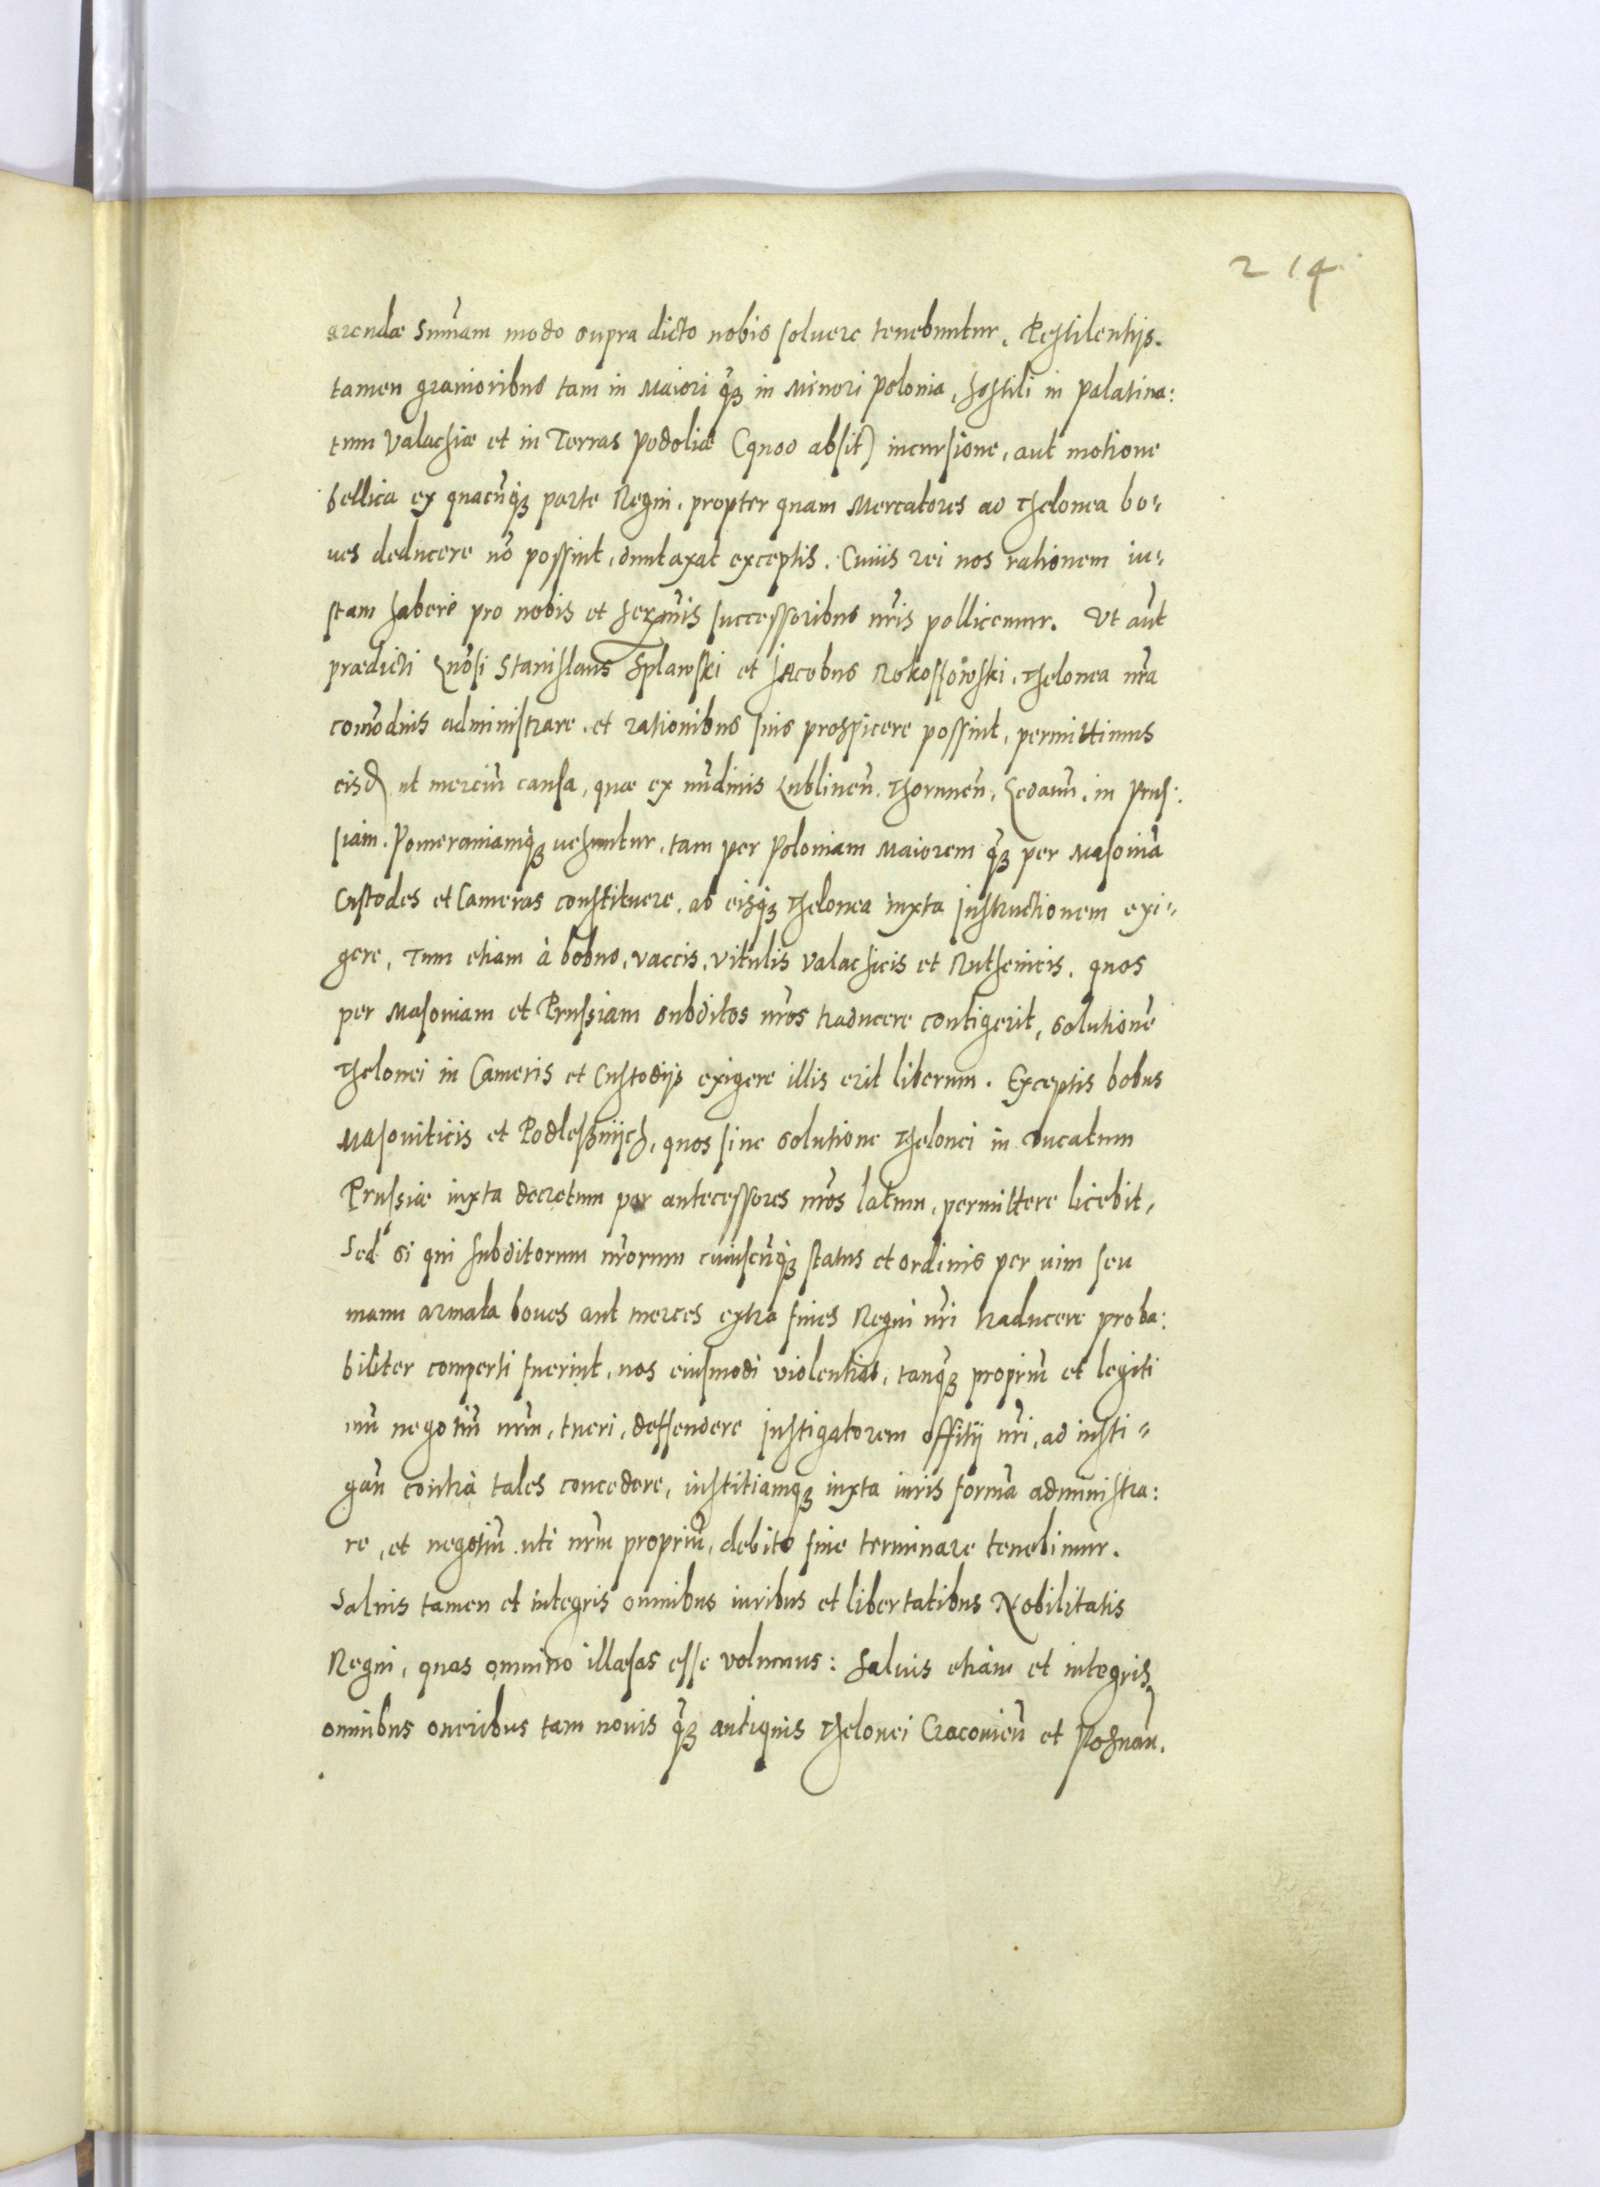 214
arendæ sum̃am modo supra dicto nobis soluere tenebuntur. Pestilentijs.
tamen grauioribus tam in Maiori q̃ȝ in Minori Polonia, hostili in Palatina:
tum Valachiæ et in Terras Podoliæ (quod absit) incursione, aut motione
bellica ex quacũqȝ parte Regni. propter quam Mercatores ad Thelonea bo-
ues deducere nõ possint, duntaxat exceptis. Cuius rei nos rationem iu-
stam haberi pro nobis et ser̃mis successoribus nr̃is pollicemur. Ut aut̃
prædicti gñosi Stanislaus Splawski et Jacobus Rokossowski, Thelonea nr̃a
com̃odius administrare, et rationibus suis prospicere possint, permittimus
eisd ut merciũ causa, quæ ex nũdinis Lublineñ. Thoruneñ, Gedanñ. in Prus:
siam. Pomeraniamqȝ uehuntur, tam per Poloniam Maiorem q̃ȝ per Masouiã
Custodes et Cameras constituere, ab eisqȝ Thelonea iuxta instructionem exi-
gere, Tum etiam à bobus, vaccis, vitulis Valachicis et Ruthenicis, quos
per Masouiam et Prussiam subditos nr̃os traducere contigerit, solutionẽ
Thelonei in Cameris et Custodijs exigere illis erit liberum. Exceptis bobus
Masouiticis et Podlessnijch, quos sine solutione Thelonei in Ducatum
Prussiæ iuxta decretum per antecessores nr̃os latum, permittere licebit,
Sed si qui subditorum nr̃orum cuiuscũqȝ status et ordinis per uim seu
manu armata boues aut merces extra fines Regni nr̃i traducere proba:
biliter comperti fuerint, nos eiusmodi violentias, tanq̃ȝ propriũ et legiti
mũ negotiũ nr̃m, tueri, deffendere instigatorem offitij nr̃i, ad insti-
gañ contrà tales concedere, iustitiamqȝ iuxta iuris formã administra:
re, et negotiũ uti nr̃m propriũ, debito fine terminare tenebimur.
Saluis tamen et integris omnibus iuribus et libertatibus Nobilitatis
Regni, quas omnino illæsas esse volumus: saluis etiam et integris
omnibus oneribus tam nouis q̃ȝ antiquis Thelonei Cracouieñ et Posnañ.